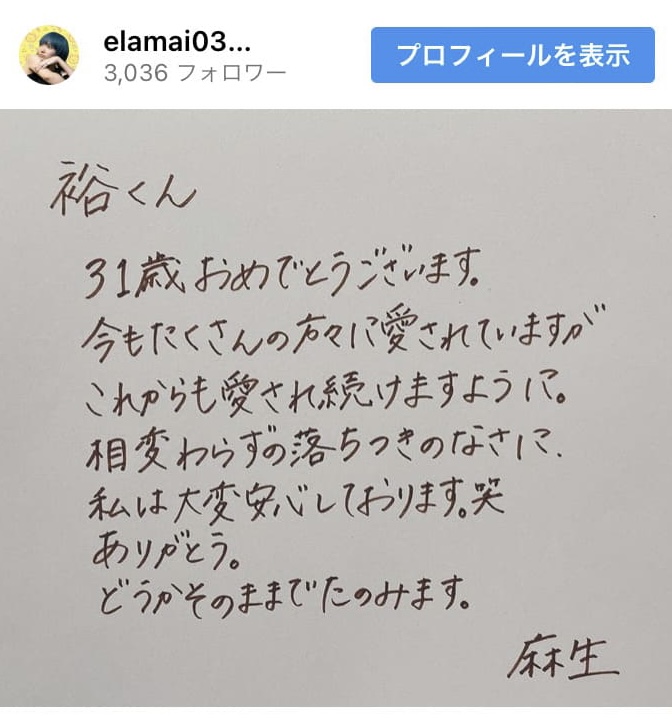 elamai03...
3,036 フォロワー
プロフィールを表示
裕くん
31歳おめでとうございます。
今もたくさんの方々に愛されていますが
これからも愛され続けますように。
相変わらずの落ちつきのなさに、
私は大変安心しております。笑
ありがとう。
どうかそのままでたのみます。
麻生